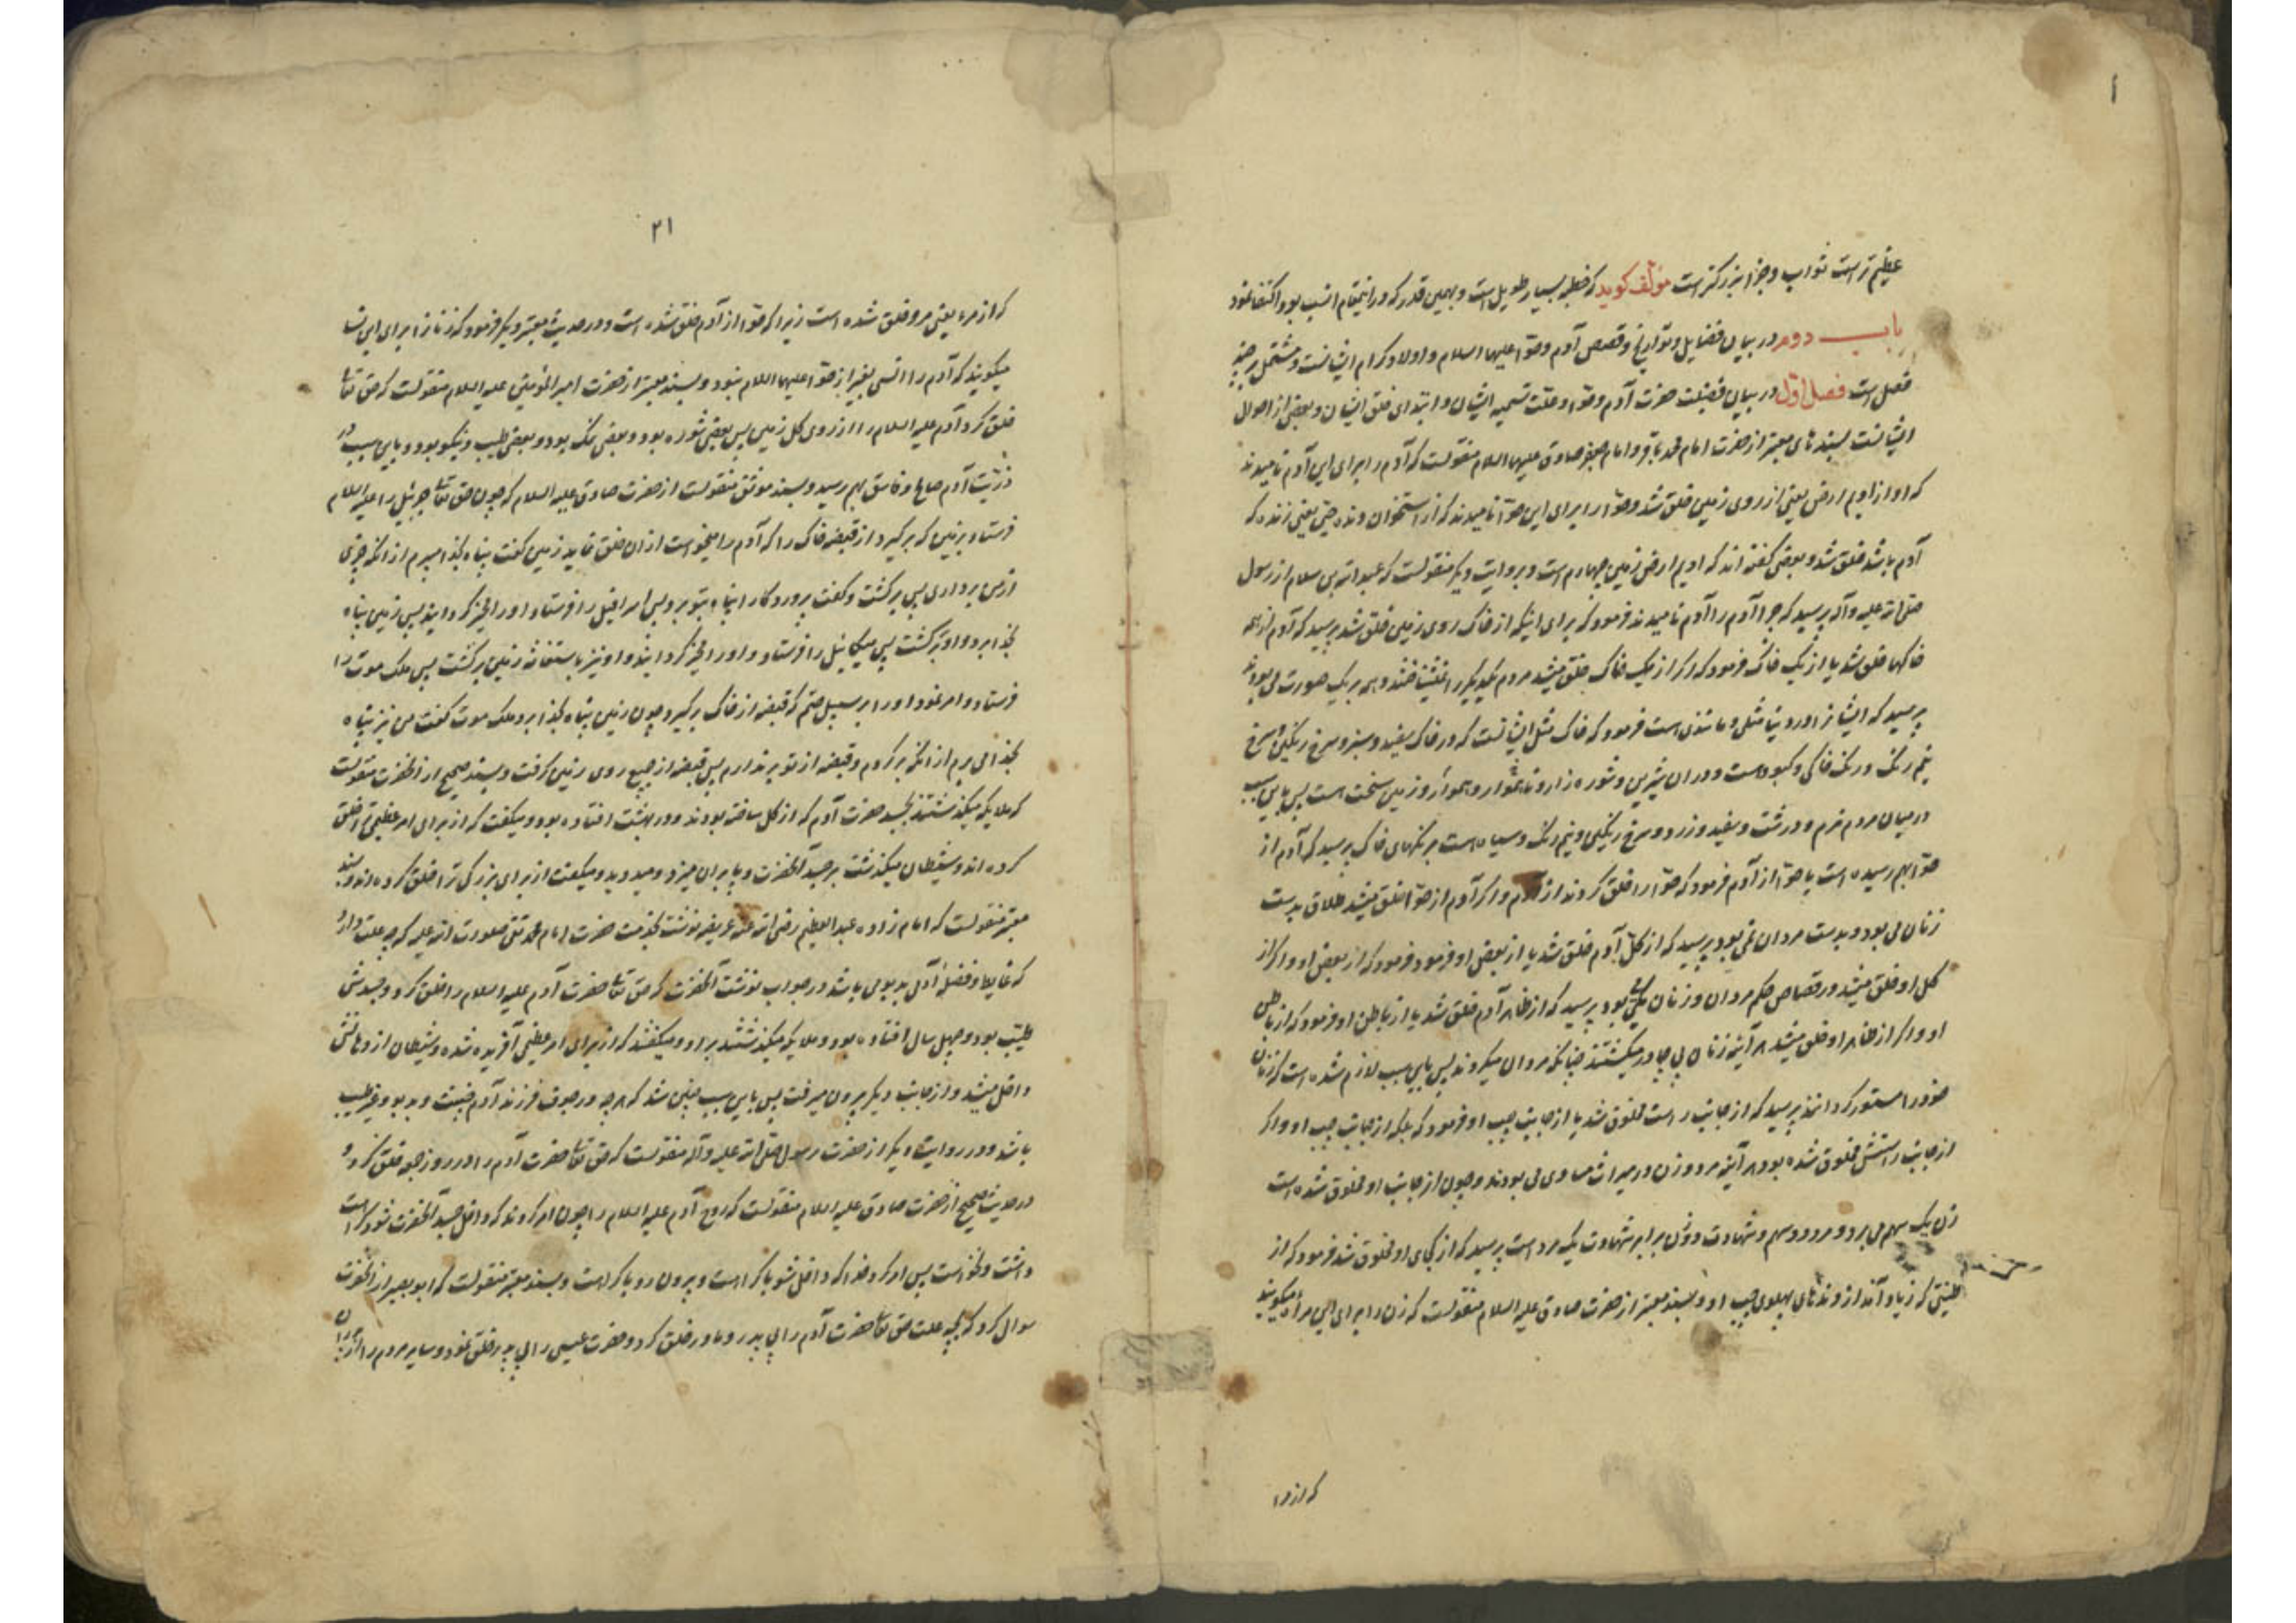 عظیم تر است ثواب و جزا بزرگتر است مؤلف گوید که خطبه بسیار طویل است و بهمین قدر که در اینمقام انسب بود اکتفا نمود
باب دوم در بیان فضایل و تواریخ و قصص آدم و حوا علیهما السلام و اولاد کرام ایشانست و مشتمل بر چند
فصل است فصل اول در بیان فضیلت حضرت آدم و حوا و علت تسمیه ایشان و ابتدای خلق ایشان و بعضی از احوال
ایشانست بسندهای معتبر از حضرت امام محمد باقر و امام جعفر صادق علیهما السلام منقولست که آدم را برای این آدم نامیدند
که او از ادیم ارض یعنی از روی زمین خلق شد و حوا را برای این حوا نامیدند که از استخوان دنده حی یعنی زنده که
آدم باشد خلق شد و بعضی گفته اند که ادیم ارض زمین چهارم است و بروایت دیگر منقولست که عبد الله بن سلام از رسول
صلی الله علیه و آله پرسید که چرا آدم را آدم نامیدند فرمود که برای اینکه از خاک روی زمین خلق شد پرسید که آدم از همه
خاکها خلق شد یا از یک خاک فرمود که اگر از یک خاک خلق میشد مردم یکدیگر را نمیشناختند و همه بر یک صورت می بودند
پرسید که ایشانرا در دنیا مثلی و مانندی است فرمود که خاک مثل ایشانست که در خاک سفید و سبز و سرخ رنگیلی و سرخ
نیم رنگ و رنگ خاکی و کبود است و در ان شیرین و شوره زار و ناهموار و هموار و زمین سخت است پس باین سبب
در میان مردم نرم و درشت و سفید و زرد و سرخ رنگیلی و نیم رنگ و سیاه است برنگهای خاک پرسید که آدم از
حوا بهم رسیده است یا حوا از آدم فرمود که حوا را خلق کردند از آدم و اگر آدم از حوا خلق میشد طلاق بدست
زنان می بود و بدست مردان نمی بود پرسید که از کل آدم خلق شد یا از بعض او فرمود فرمود که از بعض او و اگر از
کل او خلق میشد در قصاص حکم مردان و زنان یکی بود پرسید که از ظاهر آدم خلق شد یا از باطن او فرمود که از باطن
او و اگر از ظاهر او خلق میشد هر آینه زنان بی چادر میگشتند چنانکه مردان میگردند پس باین سبب لازم شده است که زنان
خود را مستور گردانند پرسید که از جانب راست مخلوق شد یا از جانب چپ او فرمود که بلکه از جانب چپ او و اگر
از جانب راستش مخلوق شده بود هر آینه مرد و زن در میراث مساوی می بودند و چون از جانب او مخلوق شده است
زن یک سهم می برد و مرد دو سهم و شهادت دو زن برابر شهادت یک مرد است پرسید که از کجای او مخلوق شد فرمود که از
طینتی که زیاد آمد از دندهای پهلوی چپ او و بسند معتبر از حضرت صادق علیه السلام منقولست که زن را برای این مرأة میگویند
که از مرء
۲۱
که از مرء یعنی مرد خلق شده است زیرا که حوا از آدم خلق شده است و در حدیث معتبر دیگر فرمود که زنانرا برای این نسا
میگویند که آدم را انسی بغیر از حوا علیهما السلام نبود و بسند معتبر از حضرت امیر المؤمنین علیه السلام منقولست که حق تعالی
خلق کرد آدم علیه السلام را از روی کل زمین پس بعضی شوره بود و بعضی نمک بود و بعضی طیب و نیکو بود و باین سبب در
ذریت آدم صالح و فاسق بهم رسید و بسند موثق منقولست از حضرت صادق علیه السلام که چون حق تعالی جبرئیل را علیه السلام
فرستاد بزمین که برگیرد از قبضه خاک را که آدم را میخواست از ان خلق نماید زمین گفت پناه بخدا میبرم از انکه چیزی
از من برداری پس برگشت و گفت پروردگارا پناه بتو برد پس اسرافیل را فرستاد و او را مخیر گردانید پس زمین پناه
بخدا برد و او برگشت پس میکائیل را فرستاد و او را مخیر گردانید و او نیز باستغاثه زمین برگشت پس ملک موت را
فرستاد و امر نمود او را بر سبیل حتم که قبضه از خاک برگیرد چون زمین پناه بخدا برد ملک موت گفت من نیز پناه
بخدا می برم از انکه برگردم و قبضه از تو برندارم پس قبضه از جمیع روی زمین گرفت و بسند صحیح از انحضرت منقولست
که ملایکه میگذشتند بجسد حضرت آدم که از گل ساخته بودند و در بهشت افتاده بود و میگفت که از برای امر عظیمی ترا خلق
کرده اند و شیطان میگذشت بر جسد آنحضرت و پا بر ان میزد و میدوید و میگفت از برای بزرگی ترا خلق کرده اند و بسند
معتبر منقولست که امام زاده عبد العظیم رضی الله عنه عریضه نوشت بخدمت حضرت امام محمد تقی صلوات الله علیه که چه علت دارد
که غایط و فضلهٔ آدمی بدبوی باشد در جواب نوشت آنحضرت که حق تعالی حضرت آدم علیه السلام را خلق کرد و جسدش
طیب بود و چهل سال افتاده بود و ملایکه میگذشتند بر او و میگفتند که از برای امر عظیمی آفریده شده و شیطان از دهانش
داخل میشد و از جانب دیگر بیرون میرفت پس باین سبب چنین شد که هر چه در جوف فرزند آدم خبیث و بدبو و غیر طیب
باشد و در روایت دیگر از حضرت رسول صلی الله علیه و آله منقولست که حق تعالی حضرت آدم را در روز جمعه خلق کرد و
در حدیث صحیح از حضرت صادق علیه السلام منقولست که روح آدم علیه السلام را چون امر کردند که داخل جسد آنحضرت شود کراهت
داشت و نخواست پس امر کرد خدا که داخل شو با کراهت و بیرون رو با کراهت و بسند معتبر منقولست که ابو بصیر از انحضرت
سوال کرد که بچه علت حق تعالی حضرت آدم را بی پدر و مادر خلق کرد و حضرت عیسی را بی پدر خلق نمود و سایر مردم را از